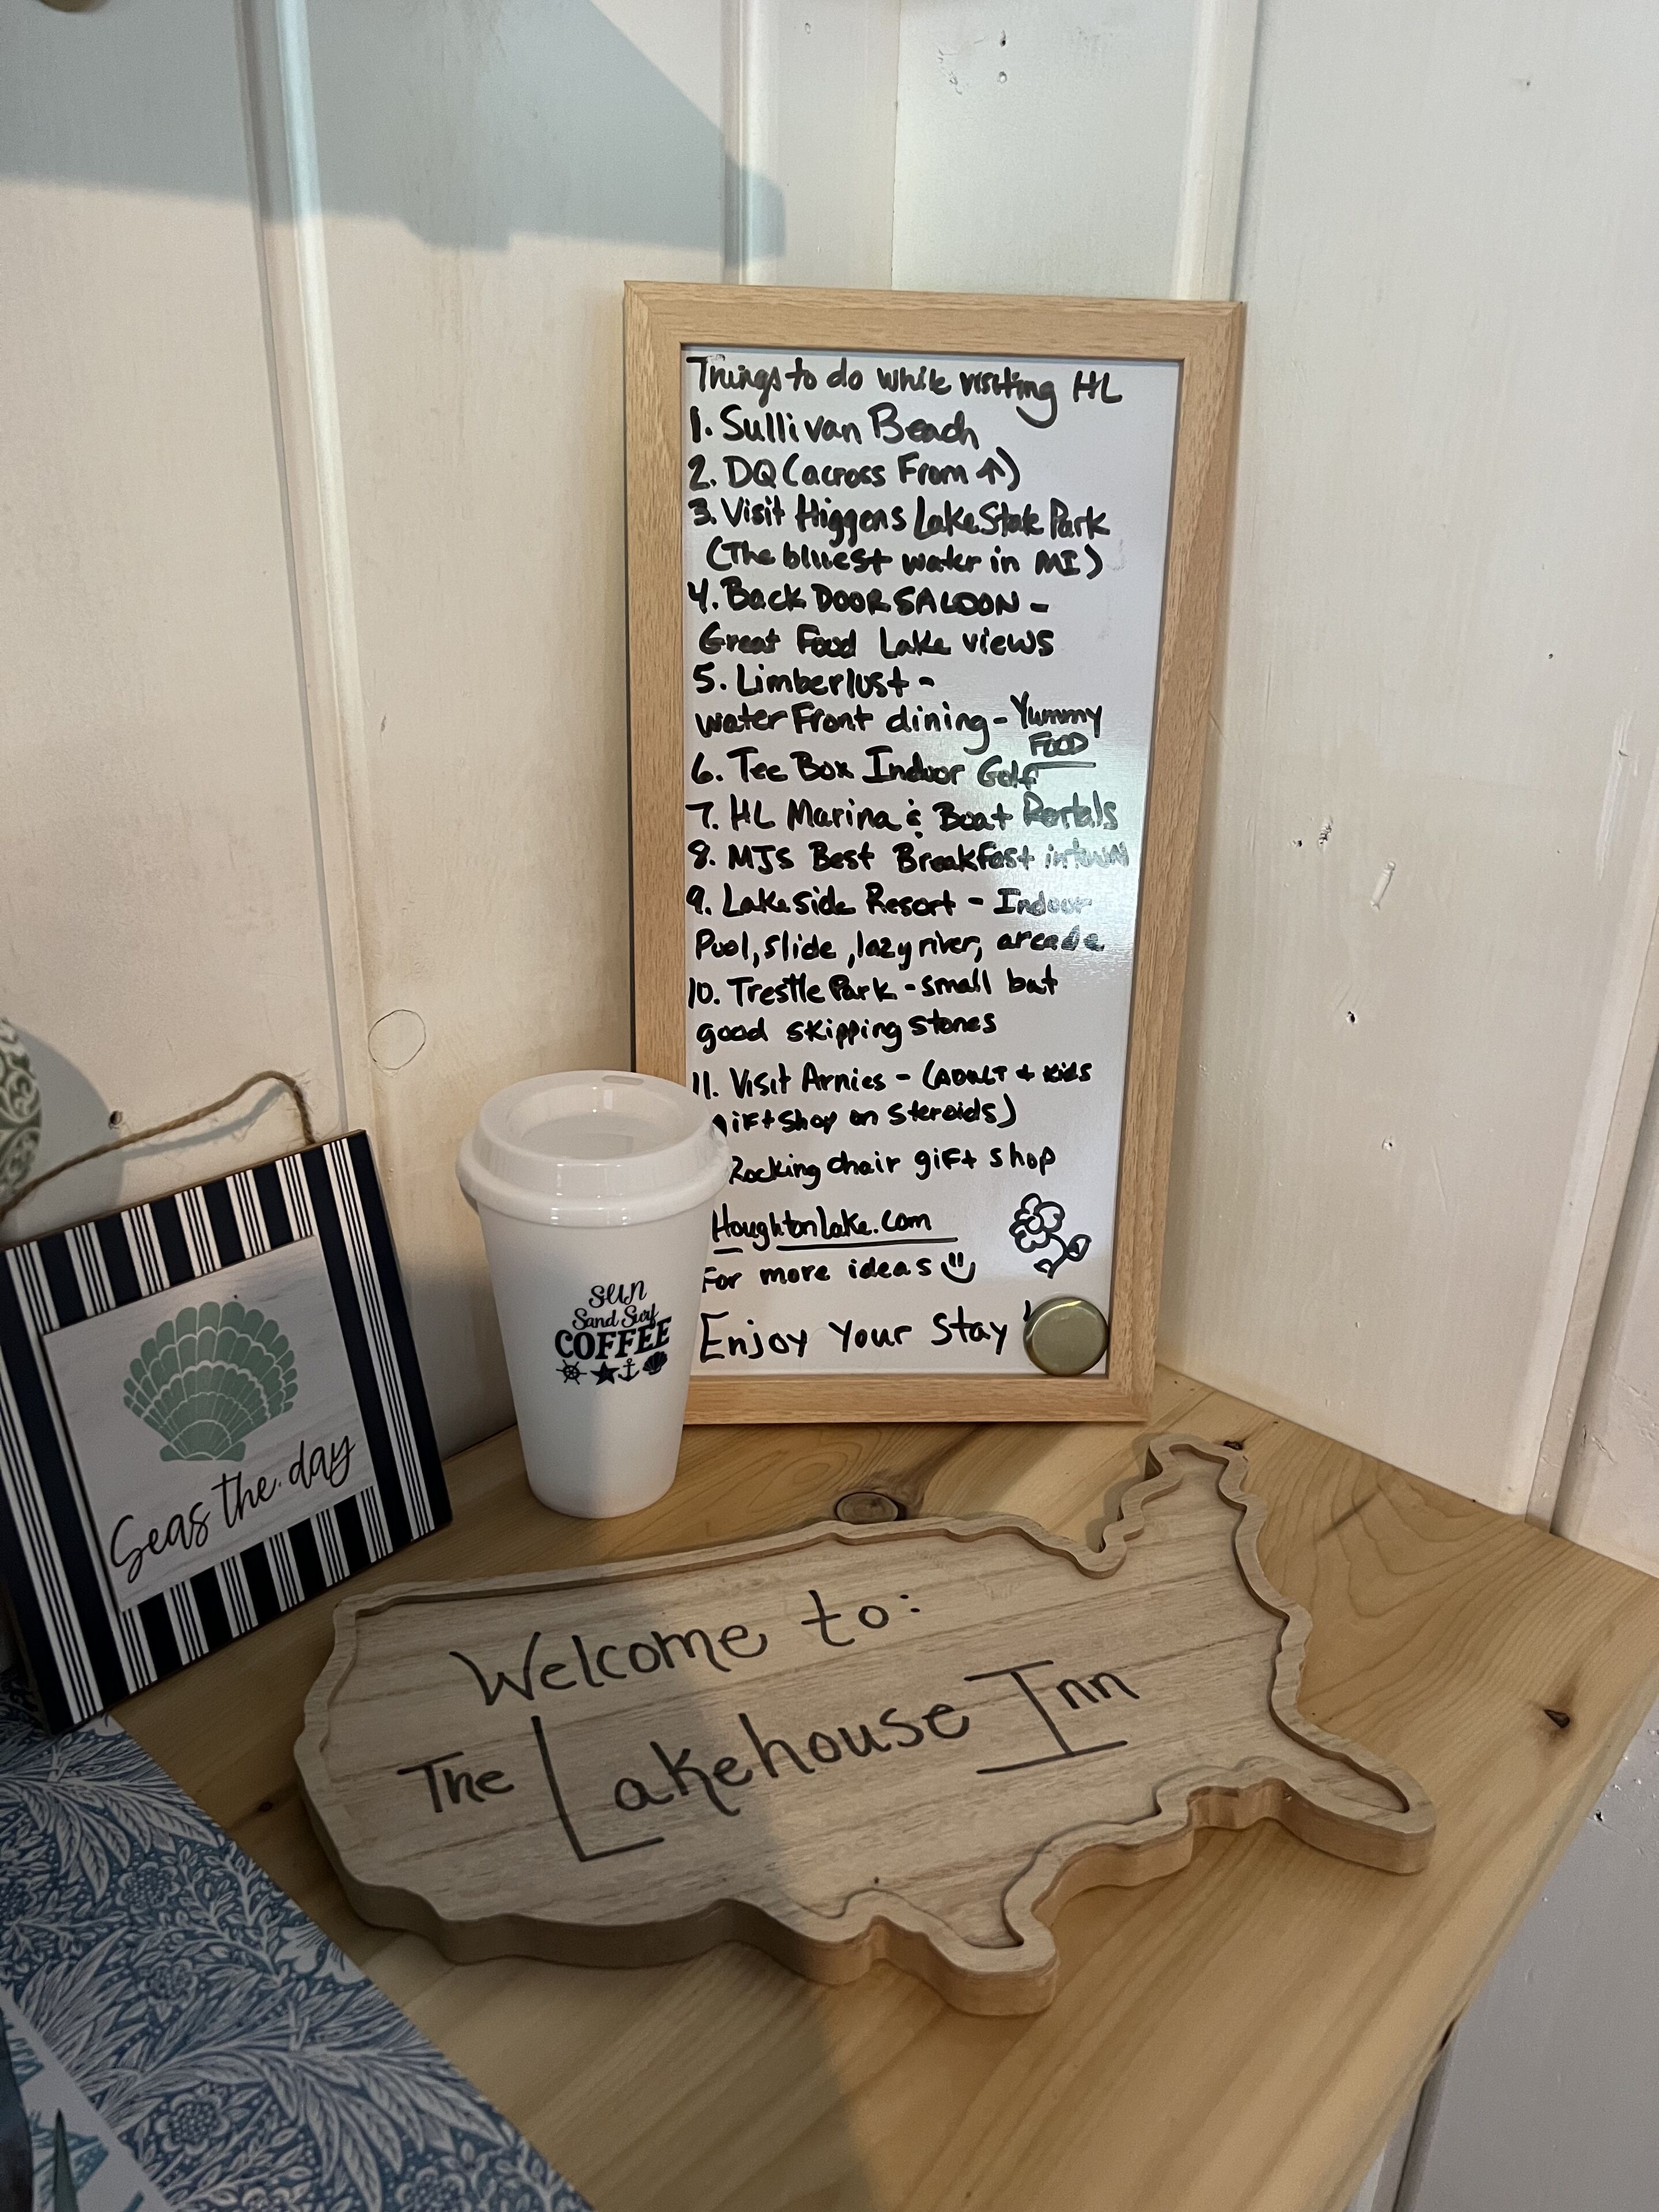 Things to do while visiting HL
1. Sullivan Beach
2. DQ (across From ↑)
3. Visit Higgens Lake State Park
(The bluest water in MI)
4. Back DOOR SALOON -
Great Food Lake views
5. Limberlust -
water Front dining - Yummy
FOOD
6. Tee Box Indoor Golf
7. HL Marina & Boat Rentals
8. MJS Best Breakfast in town
9. Lakeside Resort - Indoor
Pool, slide, lazy river, arcade
10. Trestle Park - small but
good skipping stones
11. Visit Arnies - (ADULT + kids
gift shop on steroids)
Rocking chair gift shop
HoughtonLake.com
For more ideas
Enjoy Your Stay !
SUN
Sand Surf
COFFEE
Seas the day
Welcome to:
The Lakehouse Inn